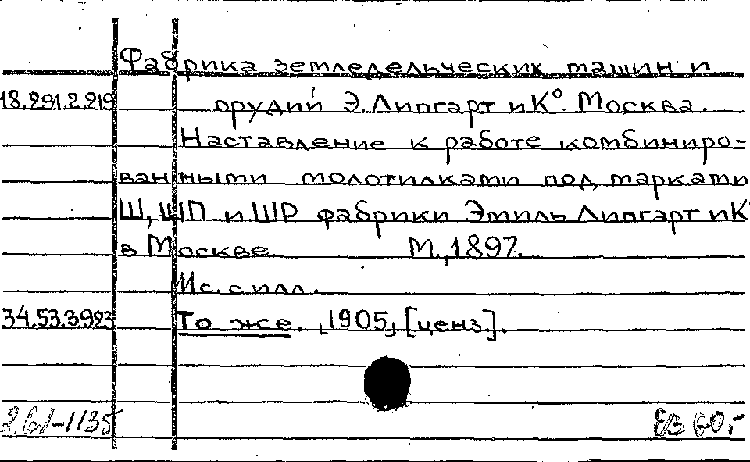 Фабрика земледельческих машин и
18.291.2.219 орудий Э. Липгарт и К°. Москва.
Наставление к работе комбиниро-
ванными молотилками под марками
Ш, ШП и ШР фабрики Эмиль Липгарт и К°
в Москве М., 1897.
Ис. с илл.
34.53.3923 То же. 1905, [ценз].